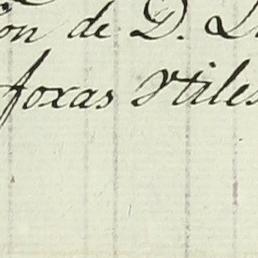 on de D. L
foxas vtiles